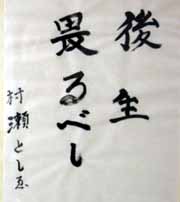 後生
畏るべし
村瀬としゑ